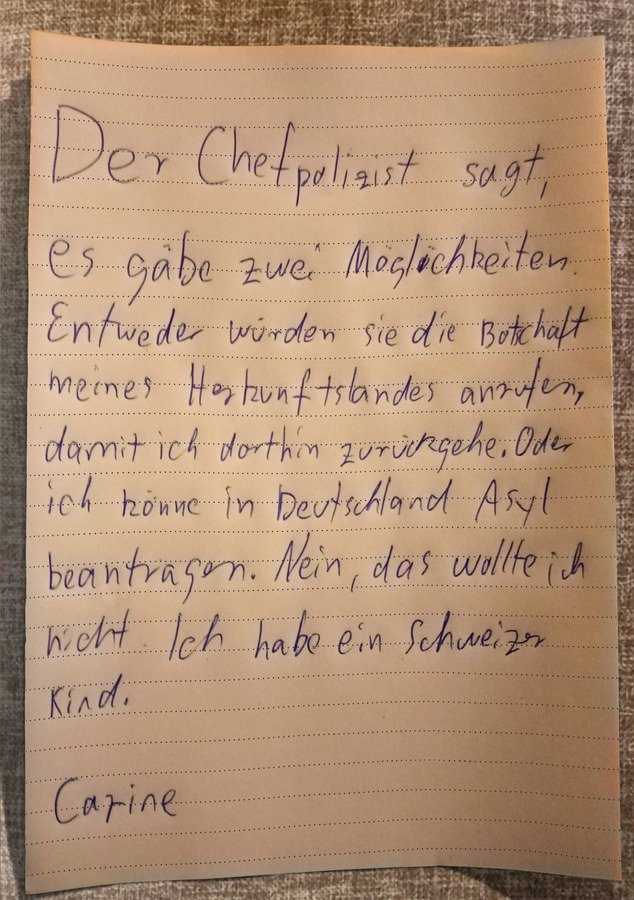 Der Chefpolizist sagt,
es gäbe zwei Möglichkeiten.
Entweder würden sie die Botschaft
meines Herkunftslandes anrufen,
damit ich dorthin zurückgehe. Oder
ich könne in Deutschland Asyl
beantragen. Nein, das wollte ich
nicht. Ich habe ein Schweizer
Kind.
Carine